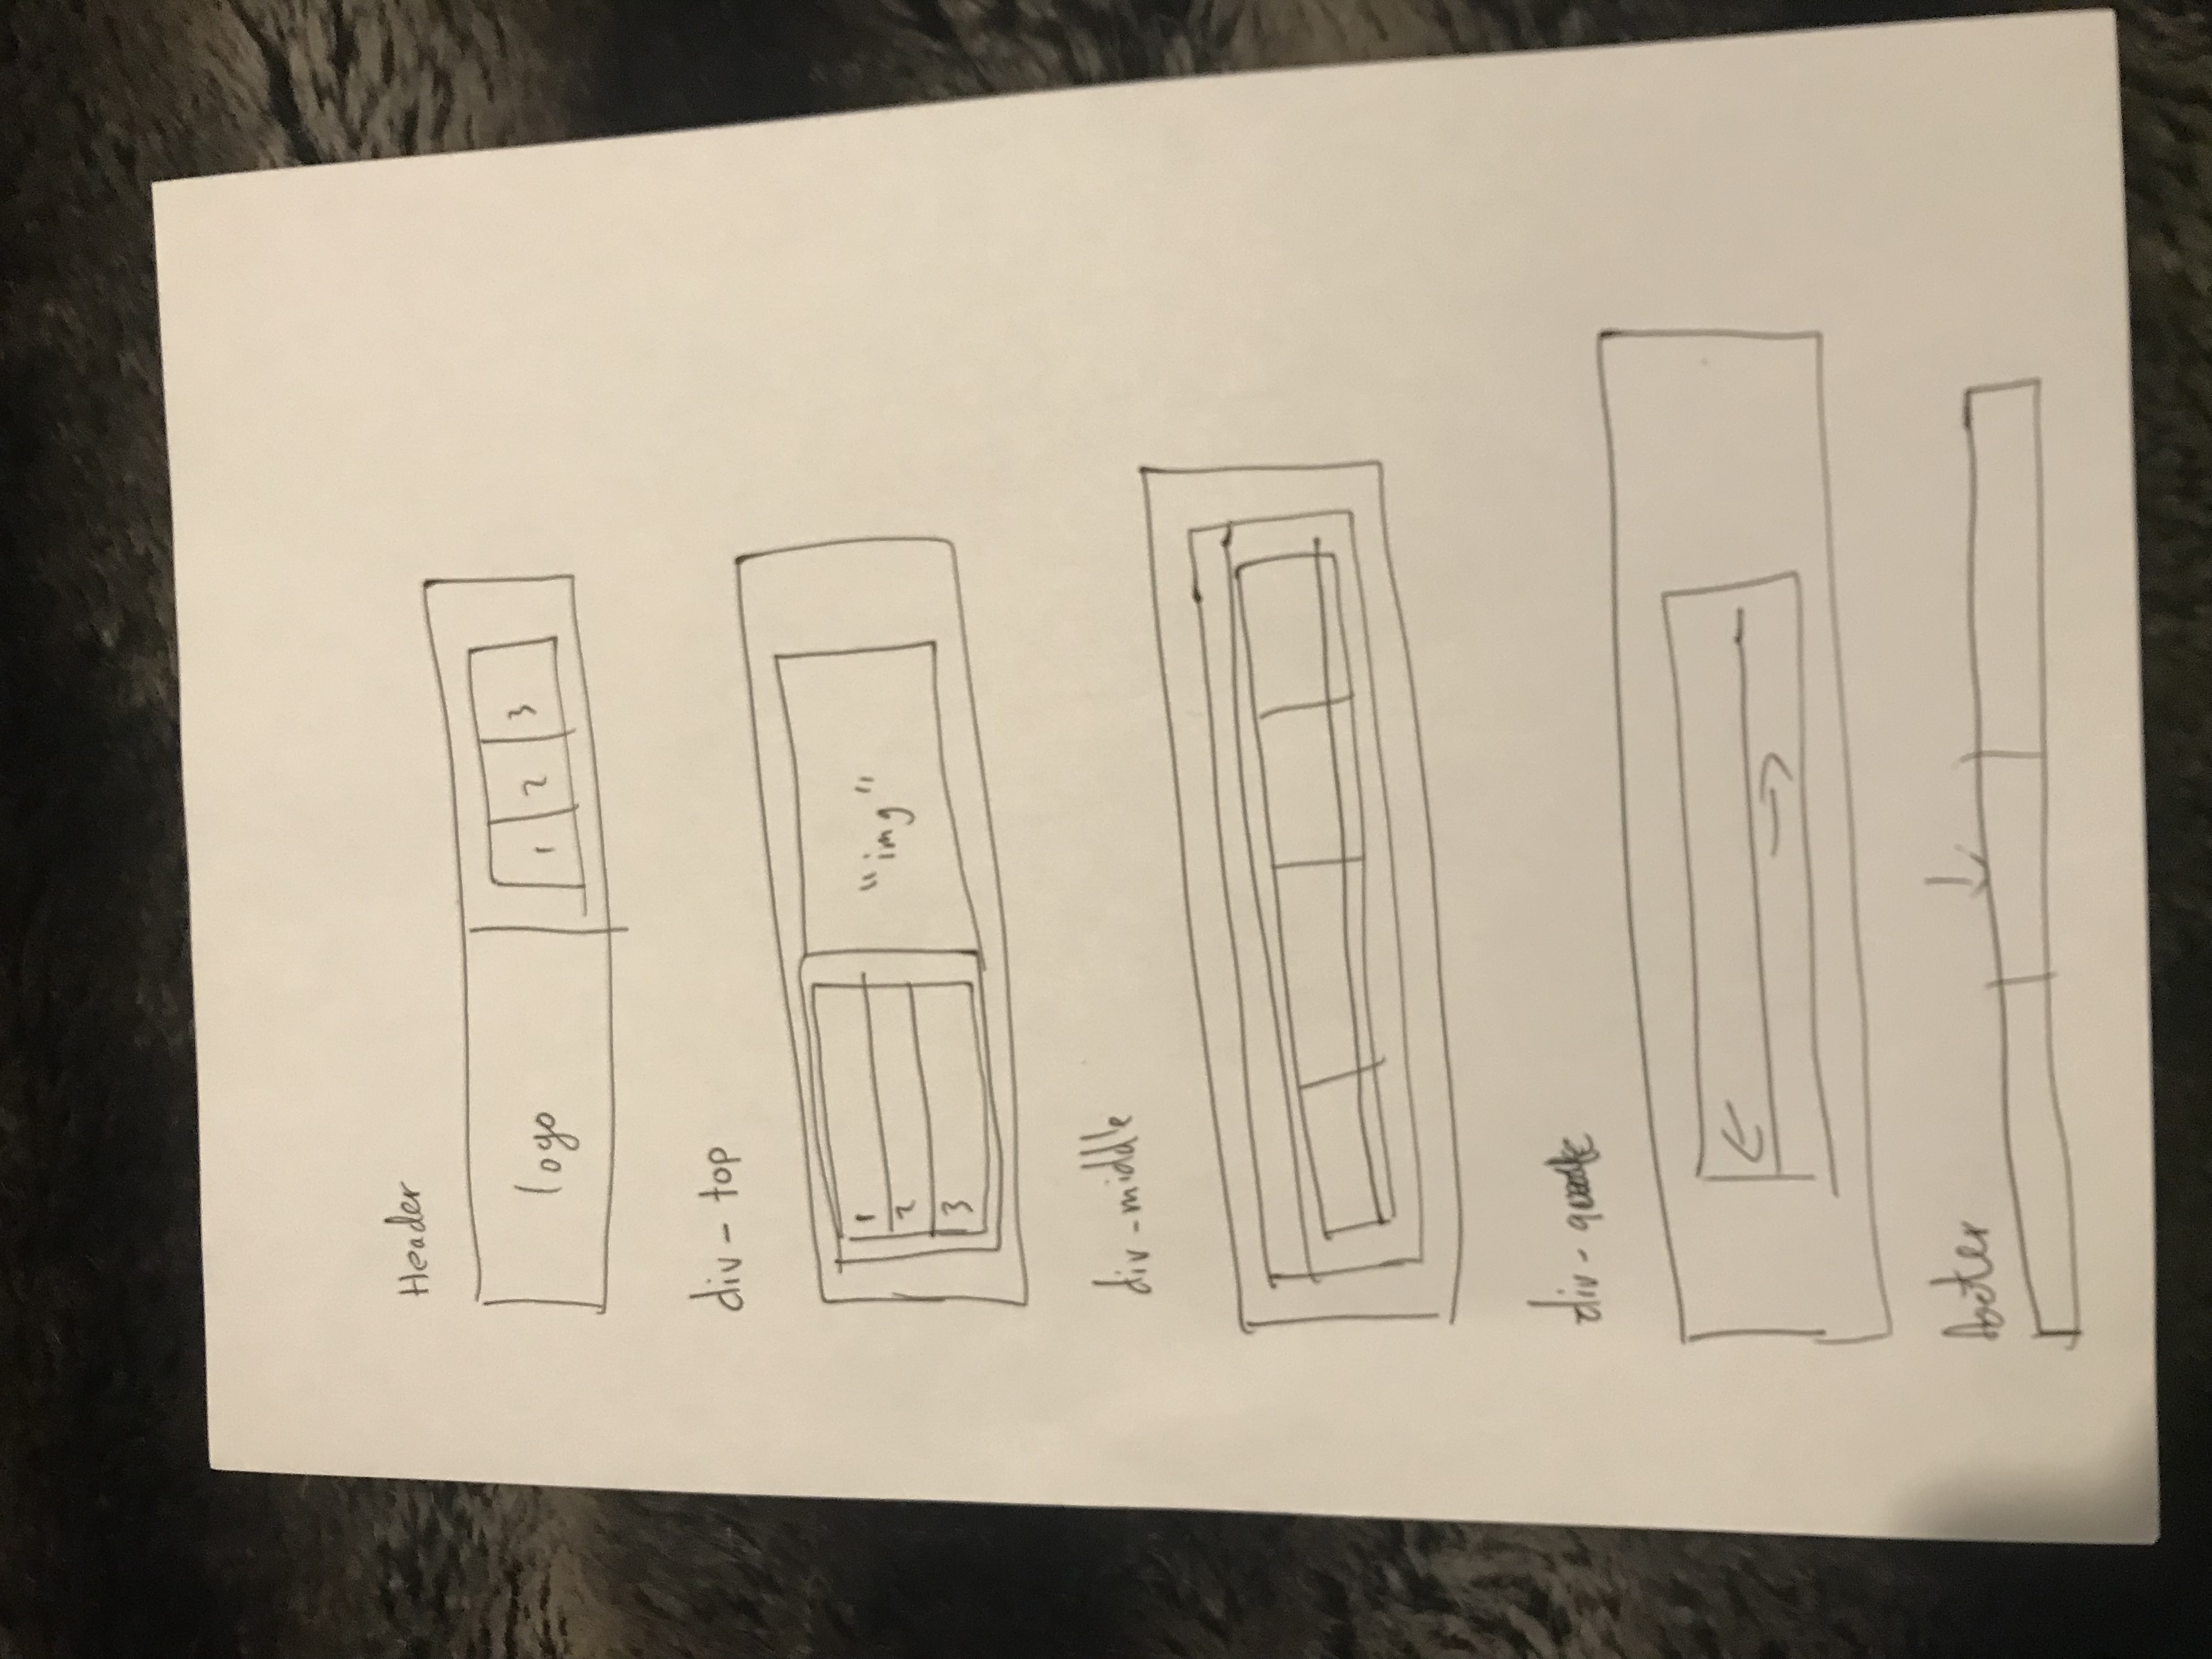 Header
logo
1 2 3
div - top
1
2
3
"img"
div - middle
div -
footer